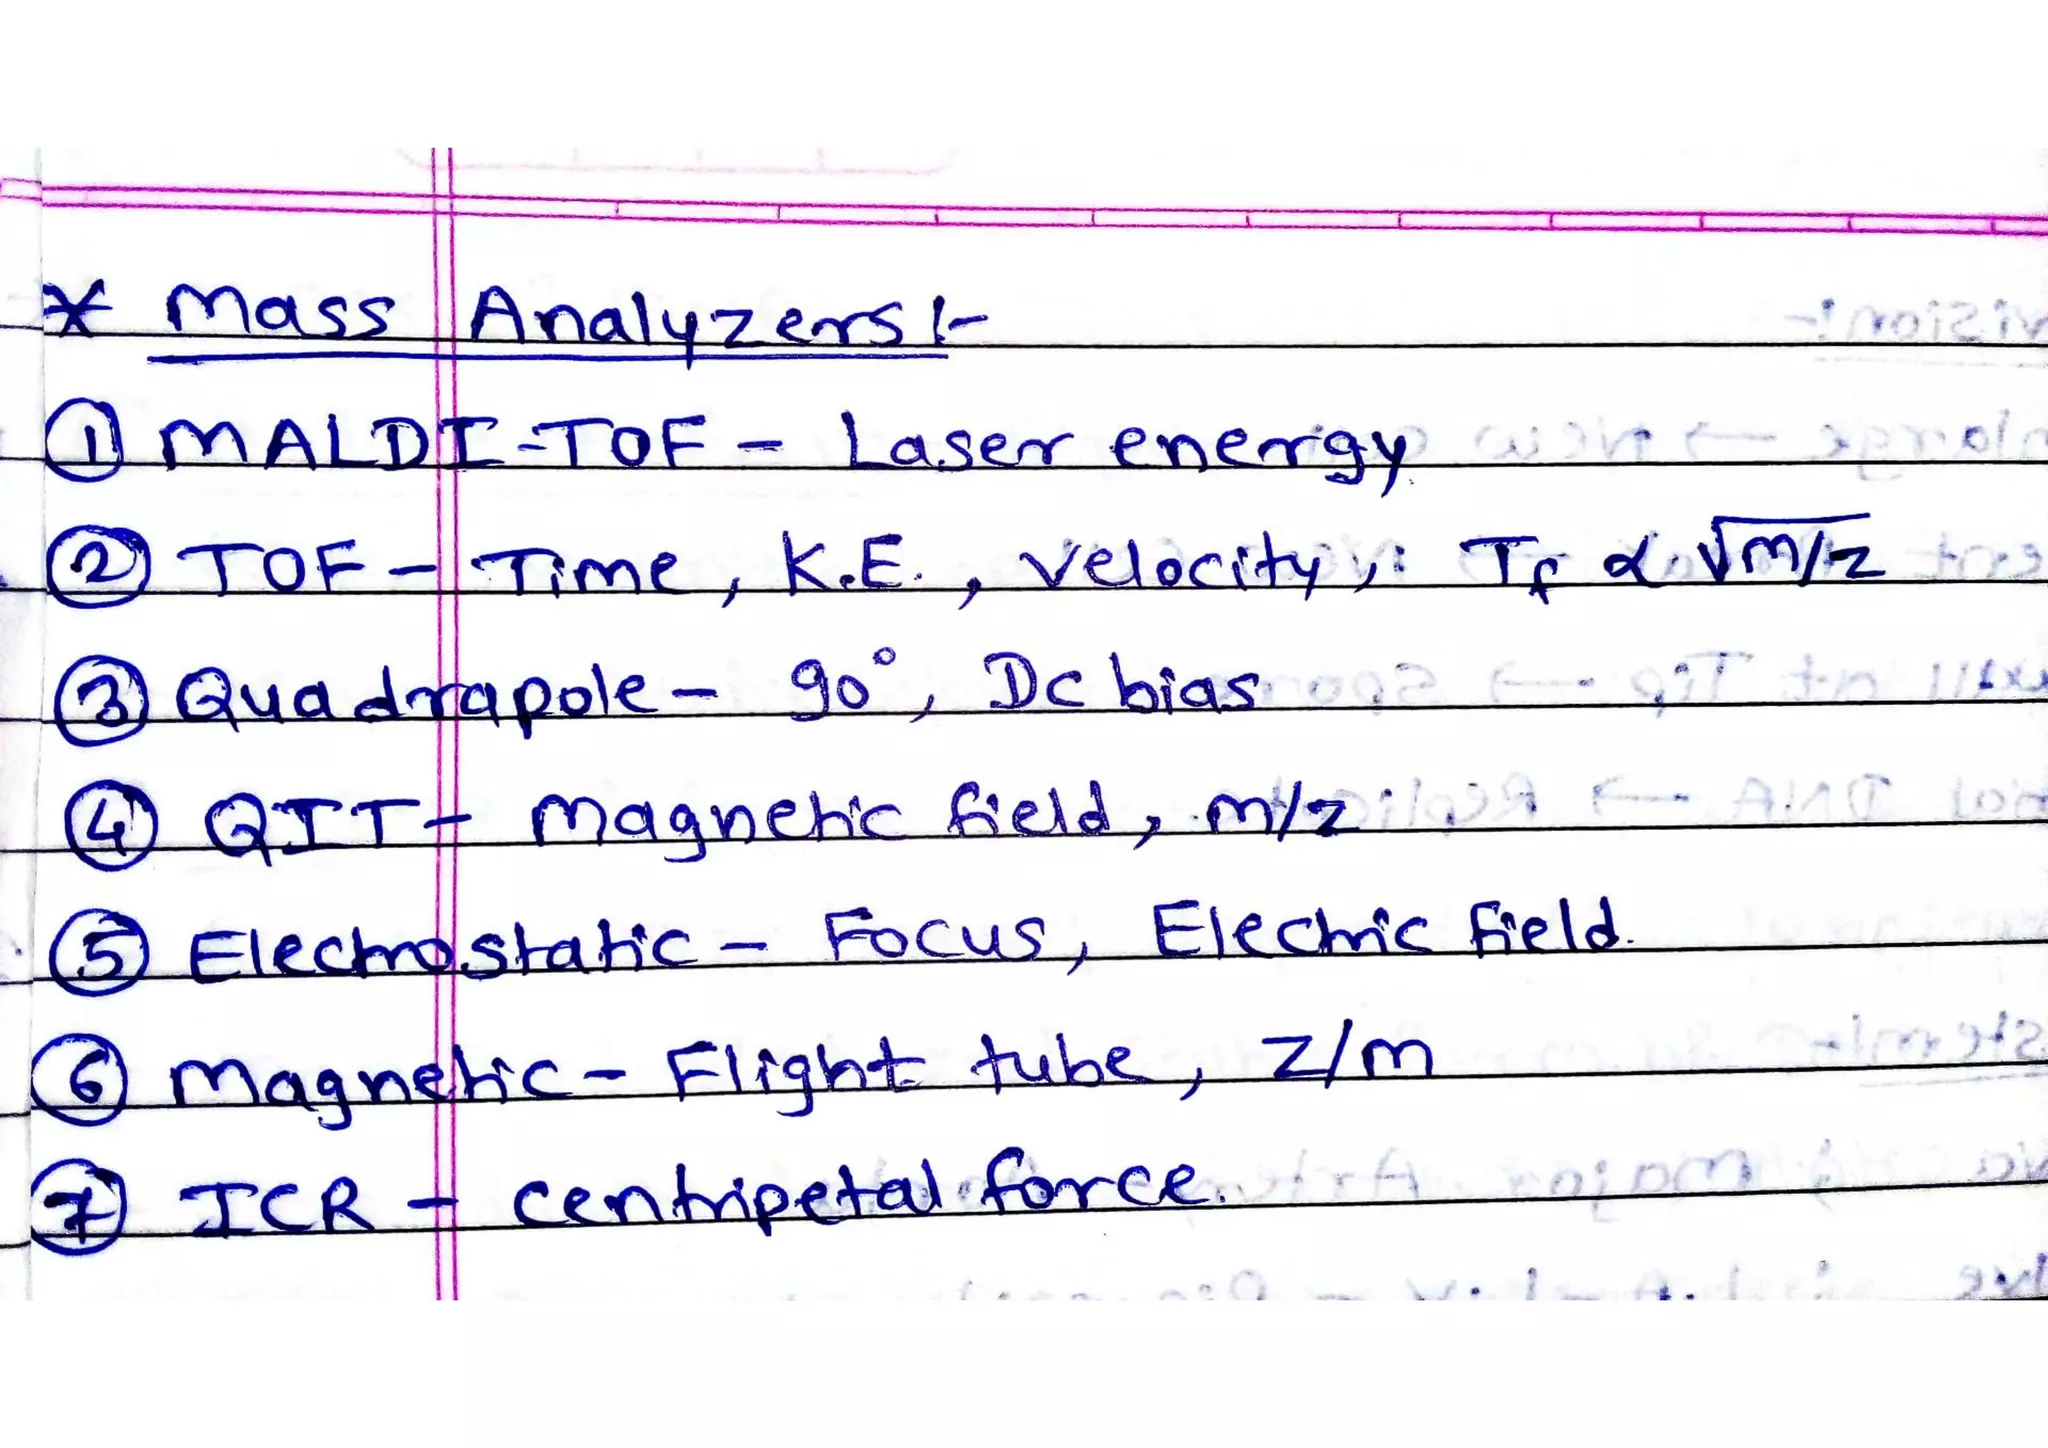 * Mass Analyzers :-
① MALDI-TOF - Laser energy.
② TOF - Time, K.E., velocity, Tf ∝ √m/z
③ Quadrapole - 90°, Dc bias
④ QIT - Magnetic field, m/z
⑤ Electrostatic - Focus, Electric field.
⑥ Magnetic - Flight tube, z/m
⑦ ICR - centripetal force.